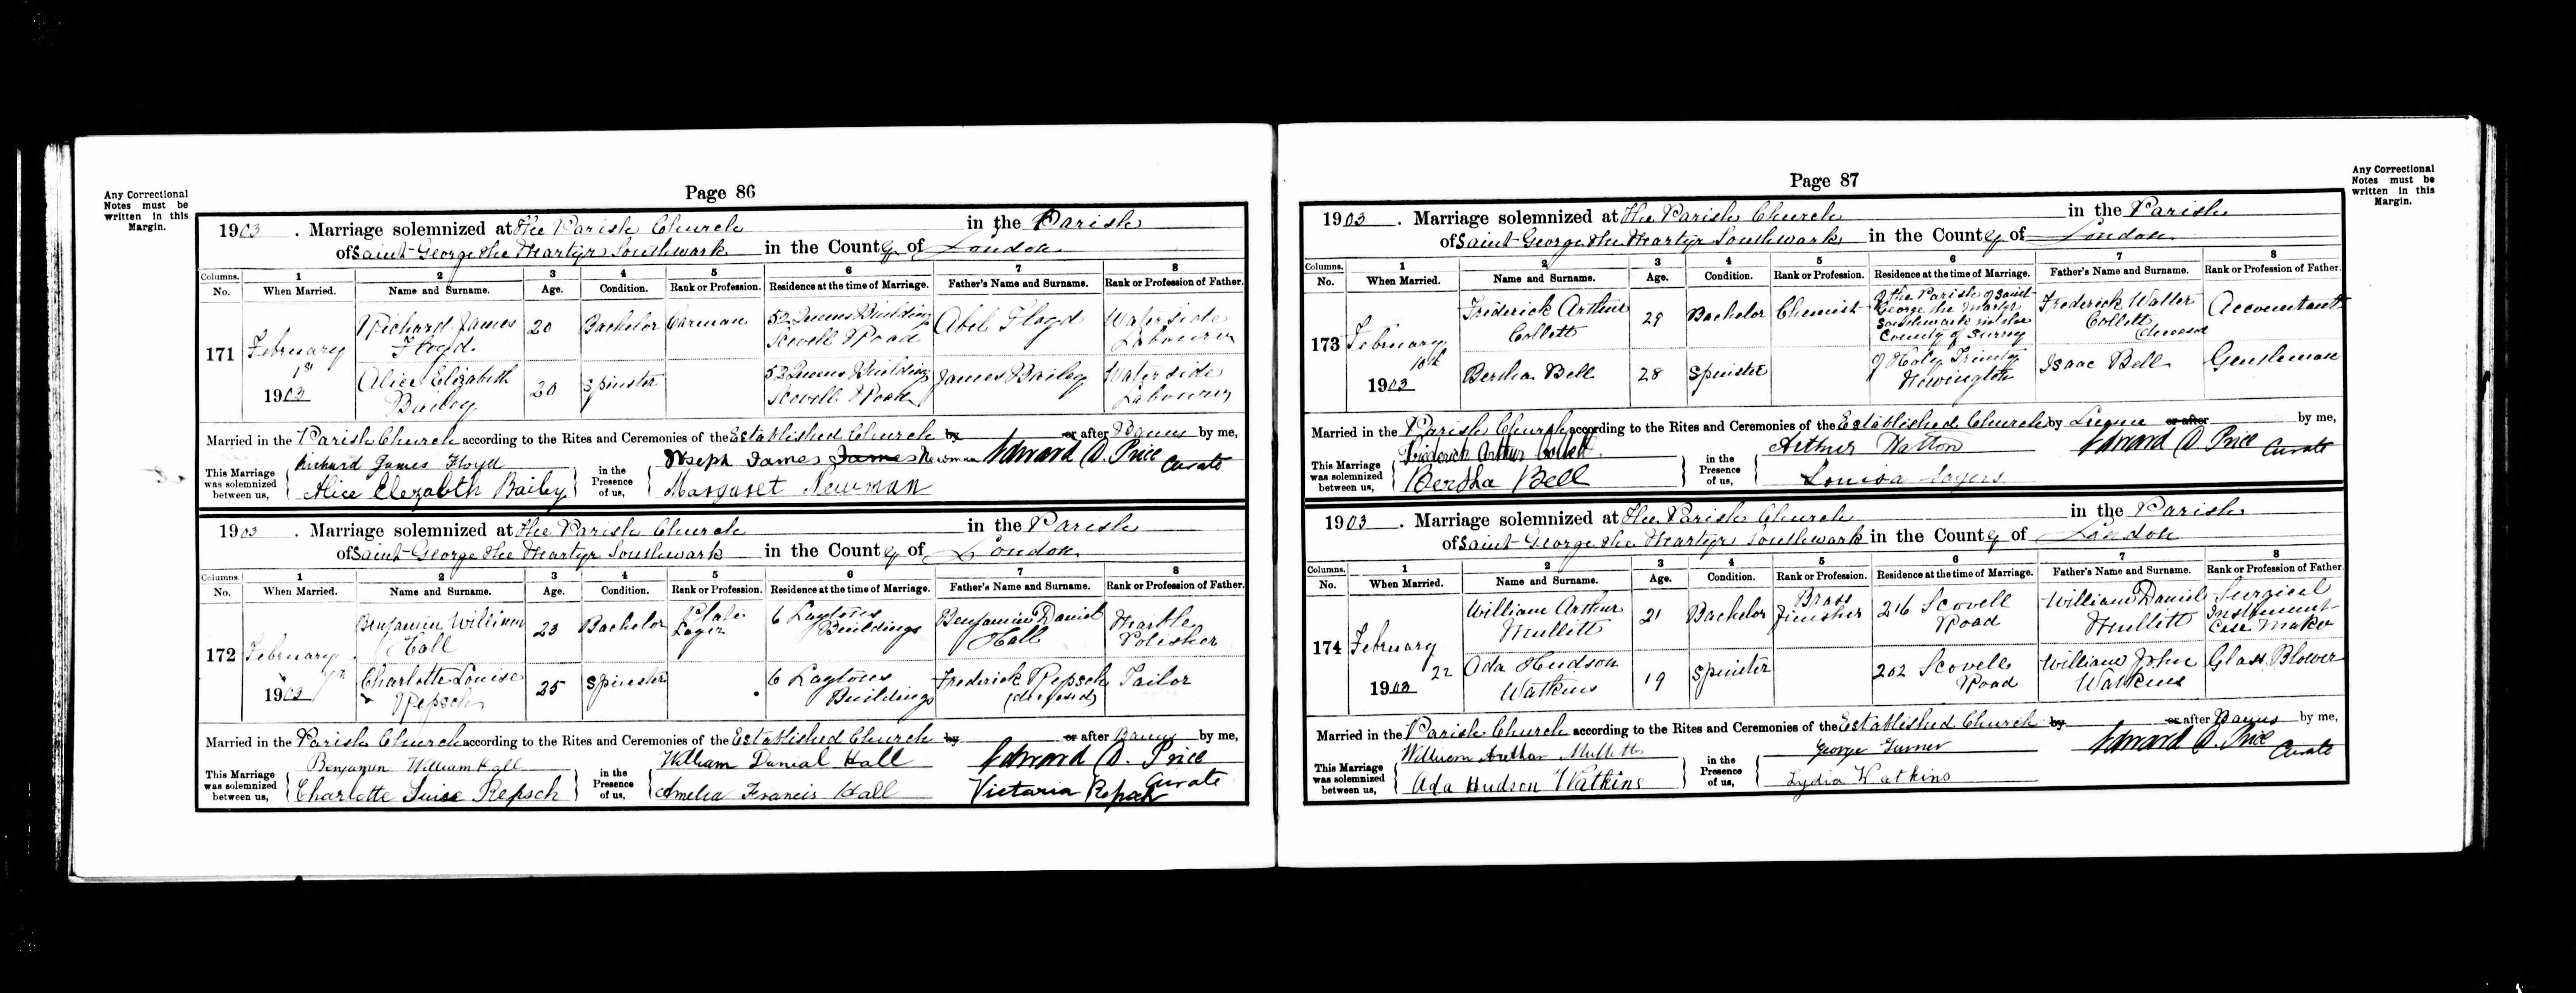 Any Correctional
Notes must be
written in this
Margin.
Page 86
1903. Marriage solemnized at The Parish Church in the Parish
of Saint George the Martyr Southwark in the County of London
Columns. 1 2 3 4 5 6 7 8
No. When Married. Name and Surname. Age. Condition. Rank or Profession. Residence at the time of Marriage. Father's Name and Surname. Rank or Profession of Father.
171 February 1st 1903
Richard James Floyd 20 Bachelor Carman 52 Queens Buildings Scovell Road Abel Floyd Waterside Labourer
Alice Elizabeth Bailey 20 Spinster 52 Queens Buildings Scovell Road James Bailey Waterside Labourer
Married in the Parish Church according to the Rites and Ceremonies of the Established Church by or after Banns by me,
This Marriage was solemnized between us, Richard James Floyd in the Presence of us, Joseph James James Newman Edward A. Price Curate
Alice Elezabeth Bailey Margaret Newman
1903. Marriage solemnized at The Parish Church in the Parish
of Saint George the Martyr Southwark in the County of London
Columns. 1 2 3 4 5 6 7 8
No. When Married. Name and Surname. Age. Condition. Rank or Profession. Residence at the time of Marriage. Father's Name and Surname. Rank or Profession of Father.
172 February 1903
Benjamin William Hall 23 Bachelor Plate Layer 6 Laytons Buildings Benjamin Daniel Hall Polisher
Charlotte Louise Repsch 25 Spinster 6 Laytons Buildings Frederick Repsch (deceased) Tailor
Married in the Parish Church according to the Rites and Ceremonies of the Established Church by or after Banns by me,
This Marriage was solemnized between us, Benjamin William Hall in the Presence of us, William Danial Hall Edward A. Price Curate
Charlotte Luise Repsch Amelia Francis Hall Victoria Repsch
Any Correctional
Notes must be
written in this
Margin.
Page 87
1903. Marriage solemnized at The Parish Church in the Parish
of Saint George the Martyr Southwark in the County of London
Columns. 1 2 3 4 5 6 7 8
No. When Married. Name and Surname. Age. Condition. Rank or Profession. Residence at the time of Marriage. Father's Name and Surname. Rank or Profession of Father.
173 February 10th 1903
Frederick Arthur Collett 29 Bachelor Chemist Of the Parish of Saint George the Martyr Southwark in the County of Surrey Frederick Walter Collett Deceased Accountant
Bertha Bell 28 Spinster Of Holy Trinity Newington Isaac Bell Gentleman
Married in the Parish Church according to the Rites and Ceremonies of the Established Church by Licence or after by me,
This Marriage was solemnized between us, Frederick Arthur Collett in the Presence of us, Arthur Hatton Edward A. Price Curate
Bertha Bell Louisa Sayers
1903. Marriage solemnized at The Parish Church in the Parish
of Saint George the Martyr Southwark in the County of London
Columns. 1 2 3 4 5 6 7 8
No. When Married. Name and Surname. Age. Condition. Rank or Profession. Residence at the time of Marriage. Father's Name and Surname. Rank or Profession of Father.
174 February 22 1903
William Arthur Mullitt 21 Bachelor Brass Finisher 216 Scovell Road William Daniel Mullitt Surgical Instrument Case Maker
Ada Hudson Watkins 19 Spinster 202 Scovell Road William John Watkins Glass Blower
Married in the Parish Church according to the Rites and Ceremonies of the Established Church by or after Banns by me,
This Marriage was solemnized between us, William Arthur Mullitt in the Presence of us, George Turner Edward A. Price Curate
Ada Hudson Watkins Lydia Watkins